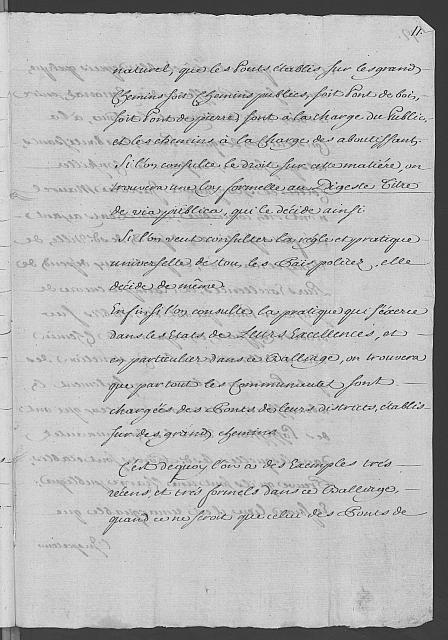 11.
naturel, que les Ponts établis sur les grand
Chemins soit Chemins publics, soit Pont de bois,
soit Pont de pierre sont à la charge du Public,
et les chemins à la Charge des aboutissant.
Si l'on consulte le droit sur cette matière, on
trouvera une loy formelle au Digeste Titre
de via publica, qui le décide ainsi
Si l'on veut consulter la règle et pratique
universelle de tou, les Païs polices, elle
décide de même
Enfin si l'on consulte la pratique qui s'exerce
dans les Etats de Leurs Excellences, et
en particulier dans ce Balliage, on trouvera
que par tout les Communautet sont
chargées des Ponts de leurs districts, établis
sur des grand, chemins
C'est dequoy l'on a des Exemples très
récens, et très formels dans ce Balliage,
quand ce ne seroit que celui des Ponts de